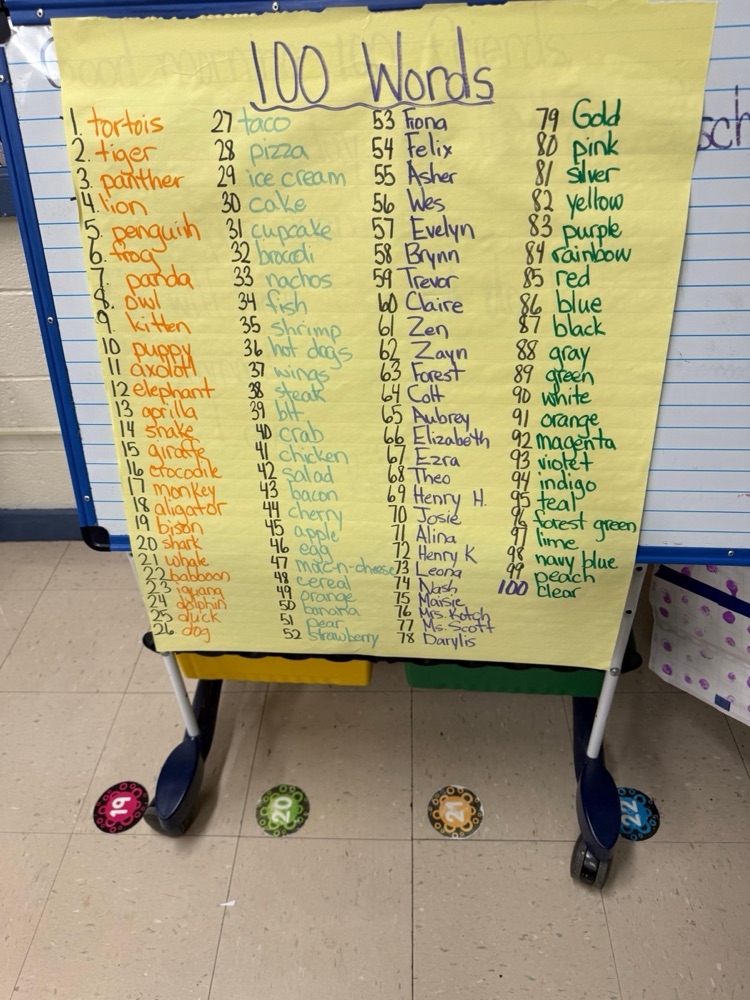 100 Words
1. tortois
2. tiger
3. panther
4. lion
5. penguin
6. frog
7. panda
8. owl
9. kitten
10 puppy
11 axolotl
12 elephant
13 gorilla
14 snake
15 giraffe
16 crocodile
17 monkey
18 aligator
19 bison
20 shark
21 whale
22 babboon
23 iguana
24 dolphin
25 duck
26 dog
27 taco
28 pizza
29 ice cream
30 cake
31 cupcake
32 brocoli
33 nachos
34 fish
35 shrimp
36 hot dogs
37 wings
38 steak
39 blt
40 crab
41 chicken
42 salad
43 bacon
44 cherry
45 apple
46 egg
47 mac-n-cheese
48 cereal
49 orange
50 banana
51 pear
52 strawberry
53 Fiona
54 Felix
55 Asher
56 Wes
57 Evelyn
58 Brynn
59 Trevor
60 Claire
61 Zen
62 Zayn
63 Forest
64 Colt
65 Aubrey
66 Elizabeth
67 Ezra
68 Theo
69 Henry H.
70 Josie
71 Alina
72 Henry K
73 Leona
74 Nash
75 Maisie
76 Mrs. Kotch
77 Ms. Scott
78 Darylis
79 Gold
80 pink
81 silver
82 yellow
83 purple
84 rainbow
85 red
86 blue
87 black
88 gray
89 green
90 white
91 orange
92 magenta
93 violet
94 indigo
95 teal
96 forest green
97 lime
98 navy blue
99 peach
100 clear
sch
19
20
21
22